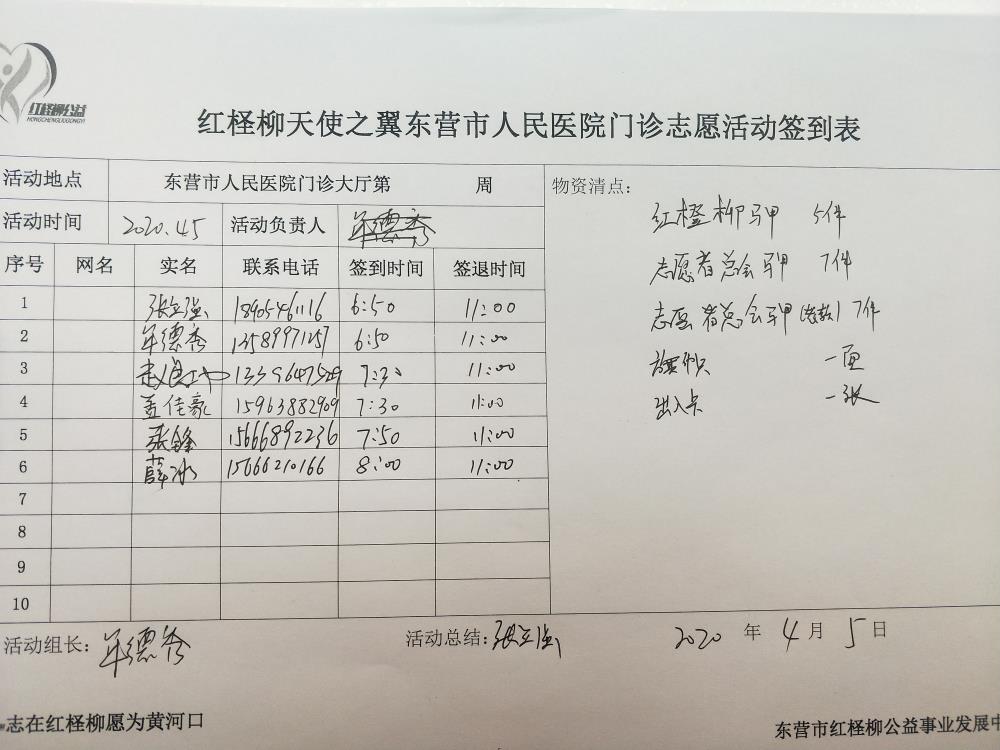 红柽柳公益
HONGCHENGLIUGONGYI
红柽柳天使之翼东营市人民医院门诊志愿活动签到表
活动地点 东营市人民医院门诊大厅第 周
活动时间 2020.4.5 活动负责人 牟德秀
序号 网名 实名 联系电话 签到时间 签退时间
1 张立强 18905461116 6:50 11:00
2 牟德秀 13589971257 6:50 11:00
3 13396475 7:30 11:00
4 盖佳豪 15963882909 7:30 11:00
5 张锋 15666892236 7:50 11:00
6 薛冰 15666210166 8:00 11:00
7
8
9
10
物资清点:
红橙柳马甲 5件
志愿者总会马甲 7件
志愿者总会马甲( ) 7件
旗帜 一面
出入卡 一张
活动组长: 牟德秀 活动总结: 张立强 2020 年 4 月 5 日
志在红柽柳愿为黄河口
东营市红柽柳公益事业发展中